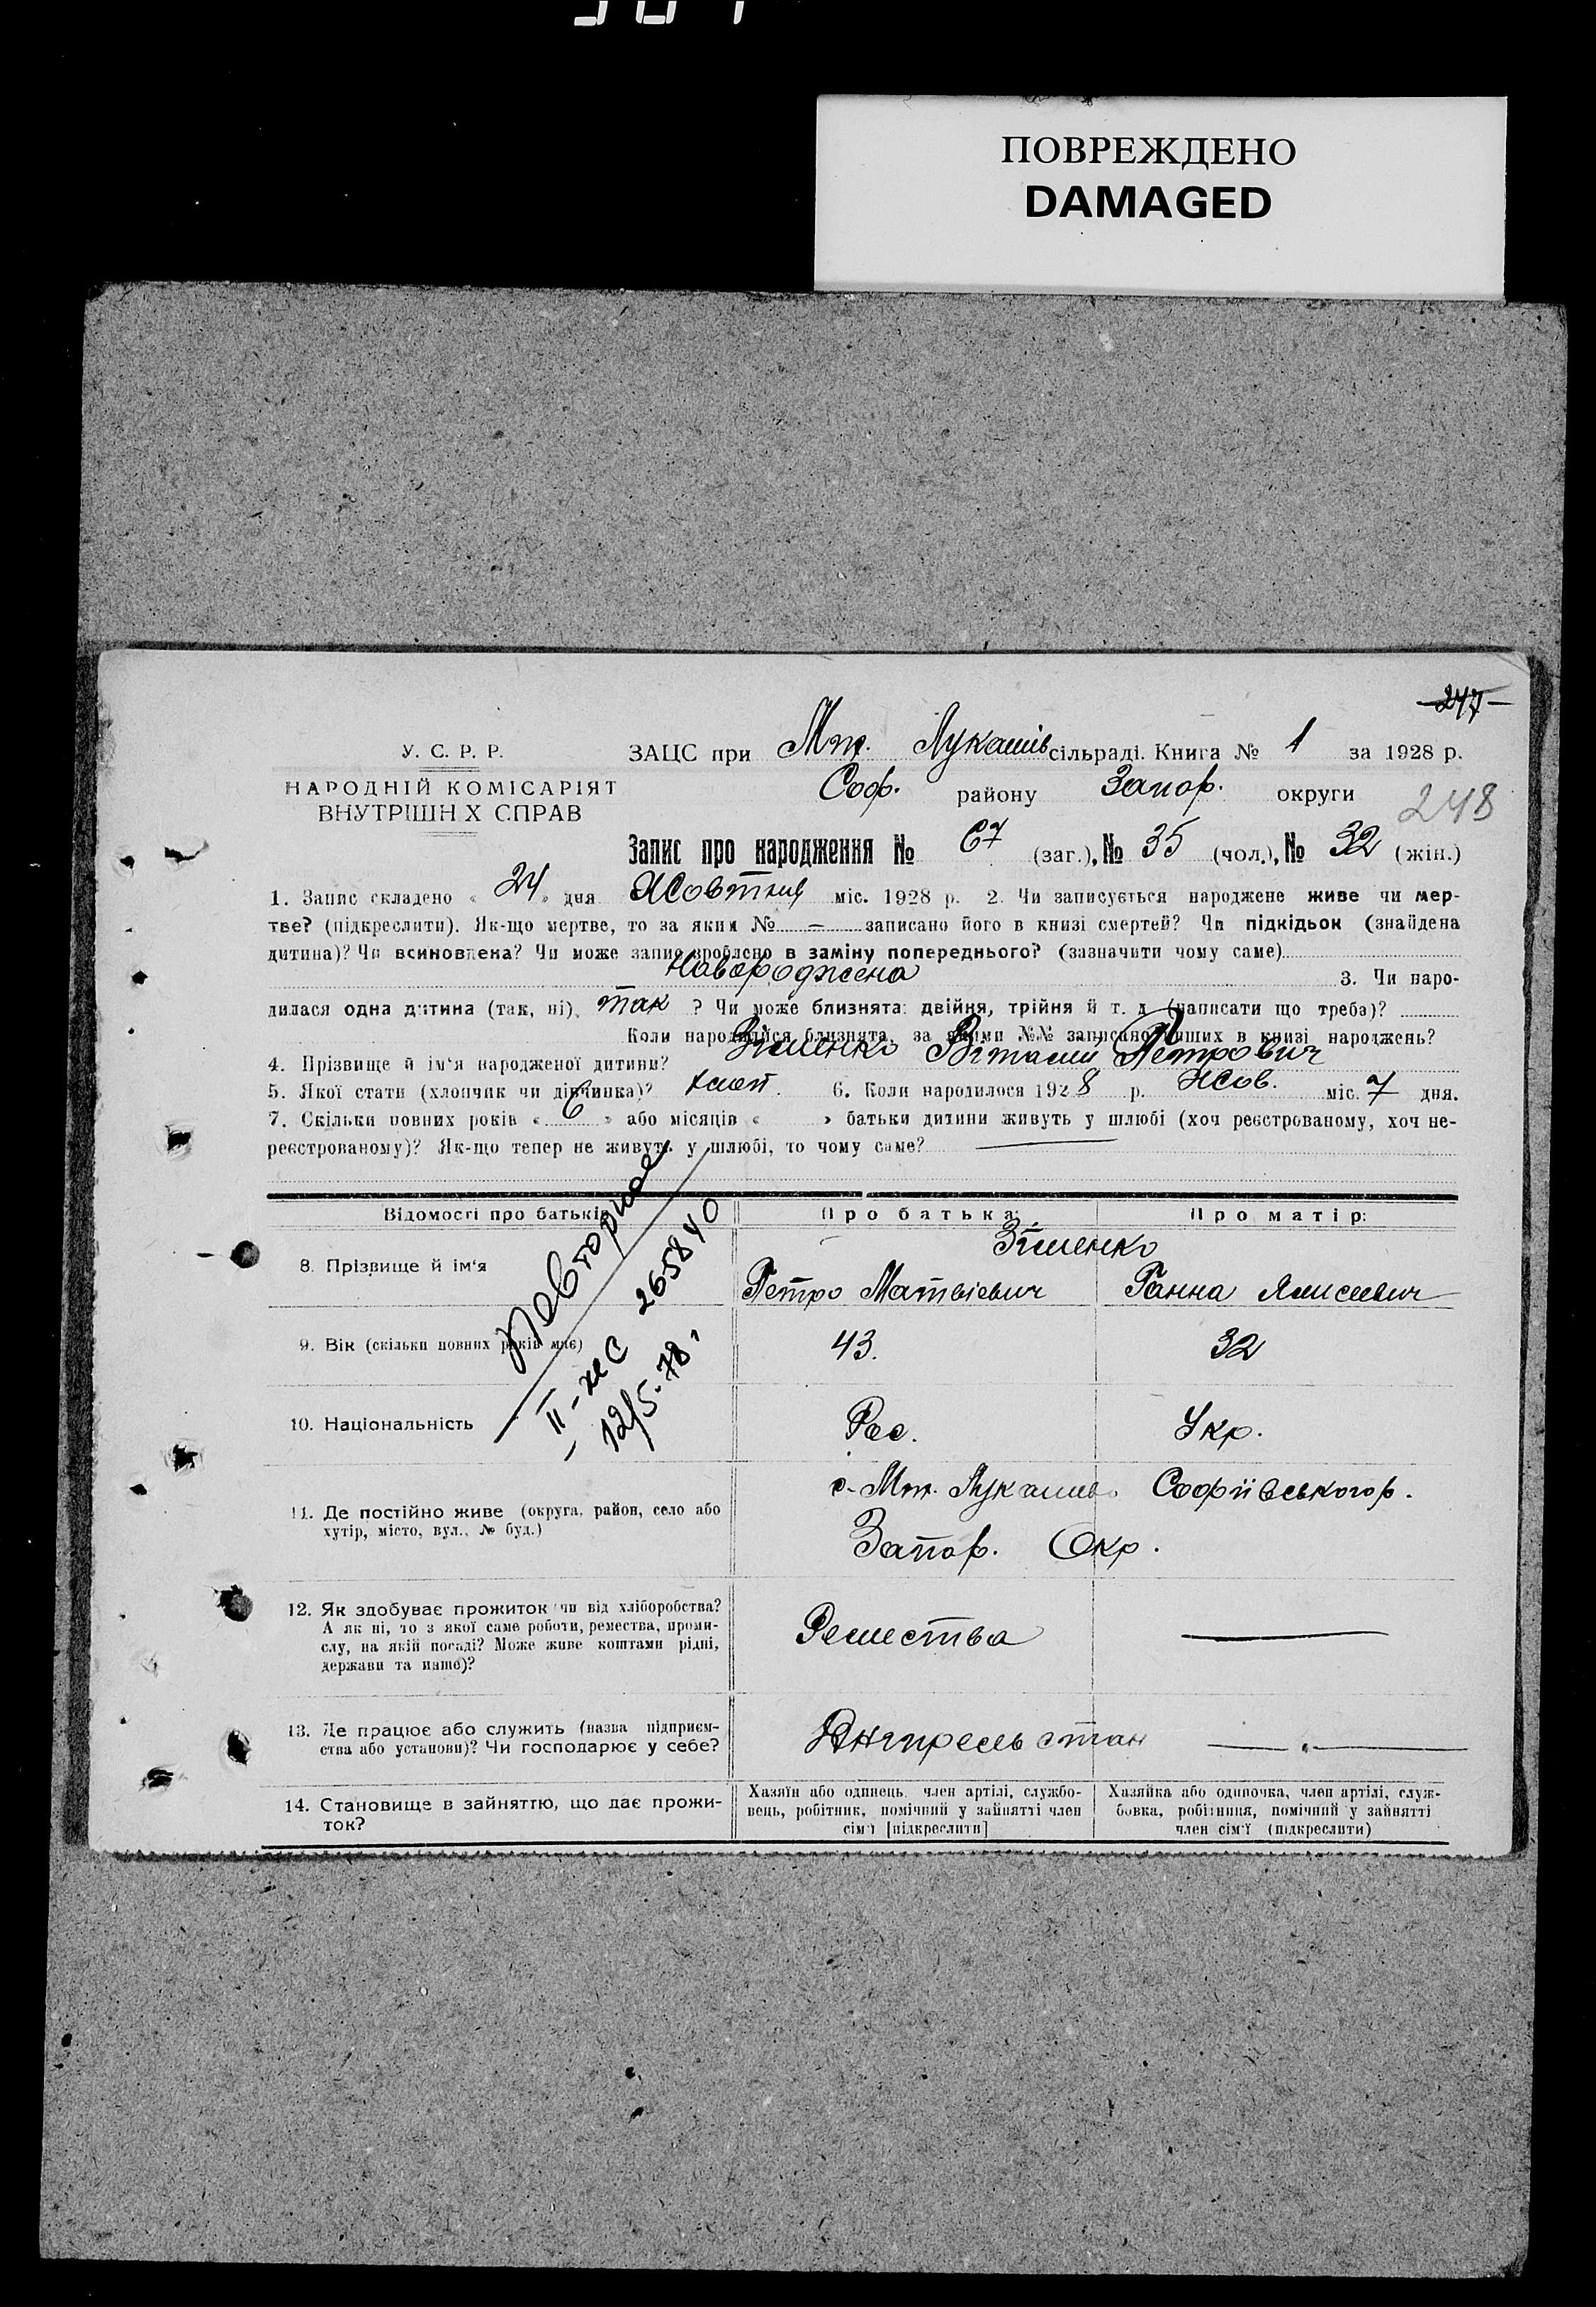 ПОВРЕЖДЕНО
DAMAGED
247
У. С. Р. Р.
НАРОДНІЙ КОМІСАРІЯТ
ВНУТРІШН Х СПРАВ
ЗАЦС при Мих. Лукашів сільраді. Книга № 1 за 1928 р.
Соф. району Запор. округи
248
Запис про народження № 67 (заг.), № 35 (чол.), № 32 (жін.)
1. Запис складено « 24 » дня Жовтня міс. 1928 р. 2. Чи записується народжене живе чи мер-
тве? (підкреслити). Як-що мертве, то за яким № — записано його в книзі смертей? Чи підкідьок (знайдена
дитина)? Чи всиновлена? Чи може запис зроблено в заміну попереднього? (зазначити чому саме)
Новороджена 3. Чи наро-
дилася одна дитина (так, ні) так ? Чи може близнята: двійня, трійня й т. д. (написати що треба)?
Коли народилися близнята, за якими №№ записано инших в книзі народжень?
4. Прізвище й ім'я народженої дитини? Зіменко Віталий Петрович
5. Якої стати (хлопчик чи дівчинка)? хлоп. 6. Коли народилося 1928 р. Жов. міс. 7 дня.
7. Скільки повних років « 6 » або місяців « » батьки дитини живуть у шлюбі (хоч реєстрованому, хоч не-
реєстрованому)? Як-що тепер не живуть у шлюбі, то чому саме? —
Відомості про батьків Про батька: Про матір:
Повторное
II-же С 265840
12/5-78,
8. Прізвище й ім'я
Зіменко
Петро Матвієвич Ганна
9. Вік (скільки повних років має) 43. 32
10. Національність Рос. Укр.
11. Де постійно живе (округа, район, село або
хутір, місто, вул., № буд.)
с. Мих. Лукашево Софіївського р.
Запор. Окр.
12. Як здобуває прожиток чи від хліборобства?
А як ні, то з якої саме роботи, ремества, проми-
слу, на якій посаді? Може живе коштами рідні,
держави та инше)?
Ремества —
13. Де працює або служить (назва підприєм-
ства або установи)? Чи господарює у себе?
— „ —
14. Становище в зайняттю, що дає прожи-
ток?
Хазяїн або одинець, член артілі, службо-
вець, робітник, помічний у зайнятті член
сім'ї [підкреслити]
Хазяйка або одиночка, член артілі, служ-
бовка, робітниця, помічний у зайнятті
член сім'ї (підкреслити)